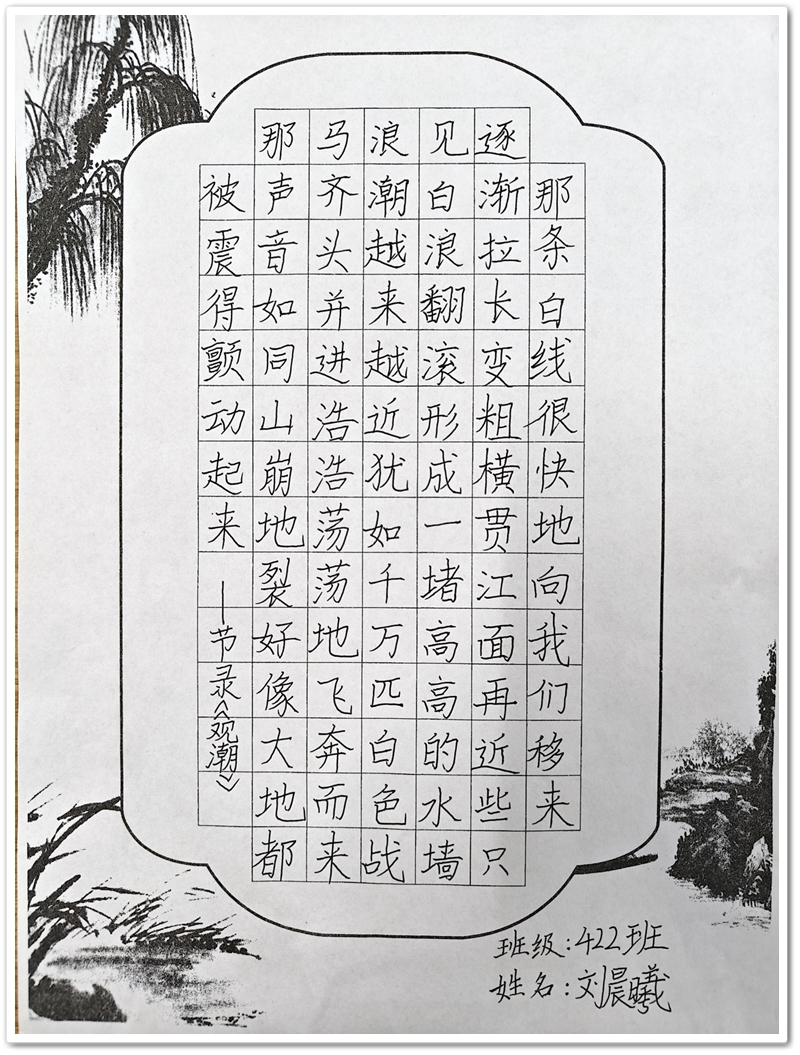 那条白线很快地向我们移来
逐渐拉长变粗横贯江面再近些只
见白浪翻滚形成一堵高高的水墙
浪潮越来越近犹如千万匹白色战
马齐头并进浩浩荡荡地飞奔而来
那声音如同山崩地裂好像大地都
被震得颤动起来 ——节录《观潮》
班级:422班
姓名:刘晨曦